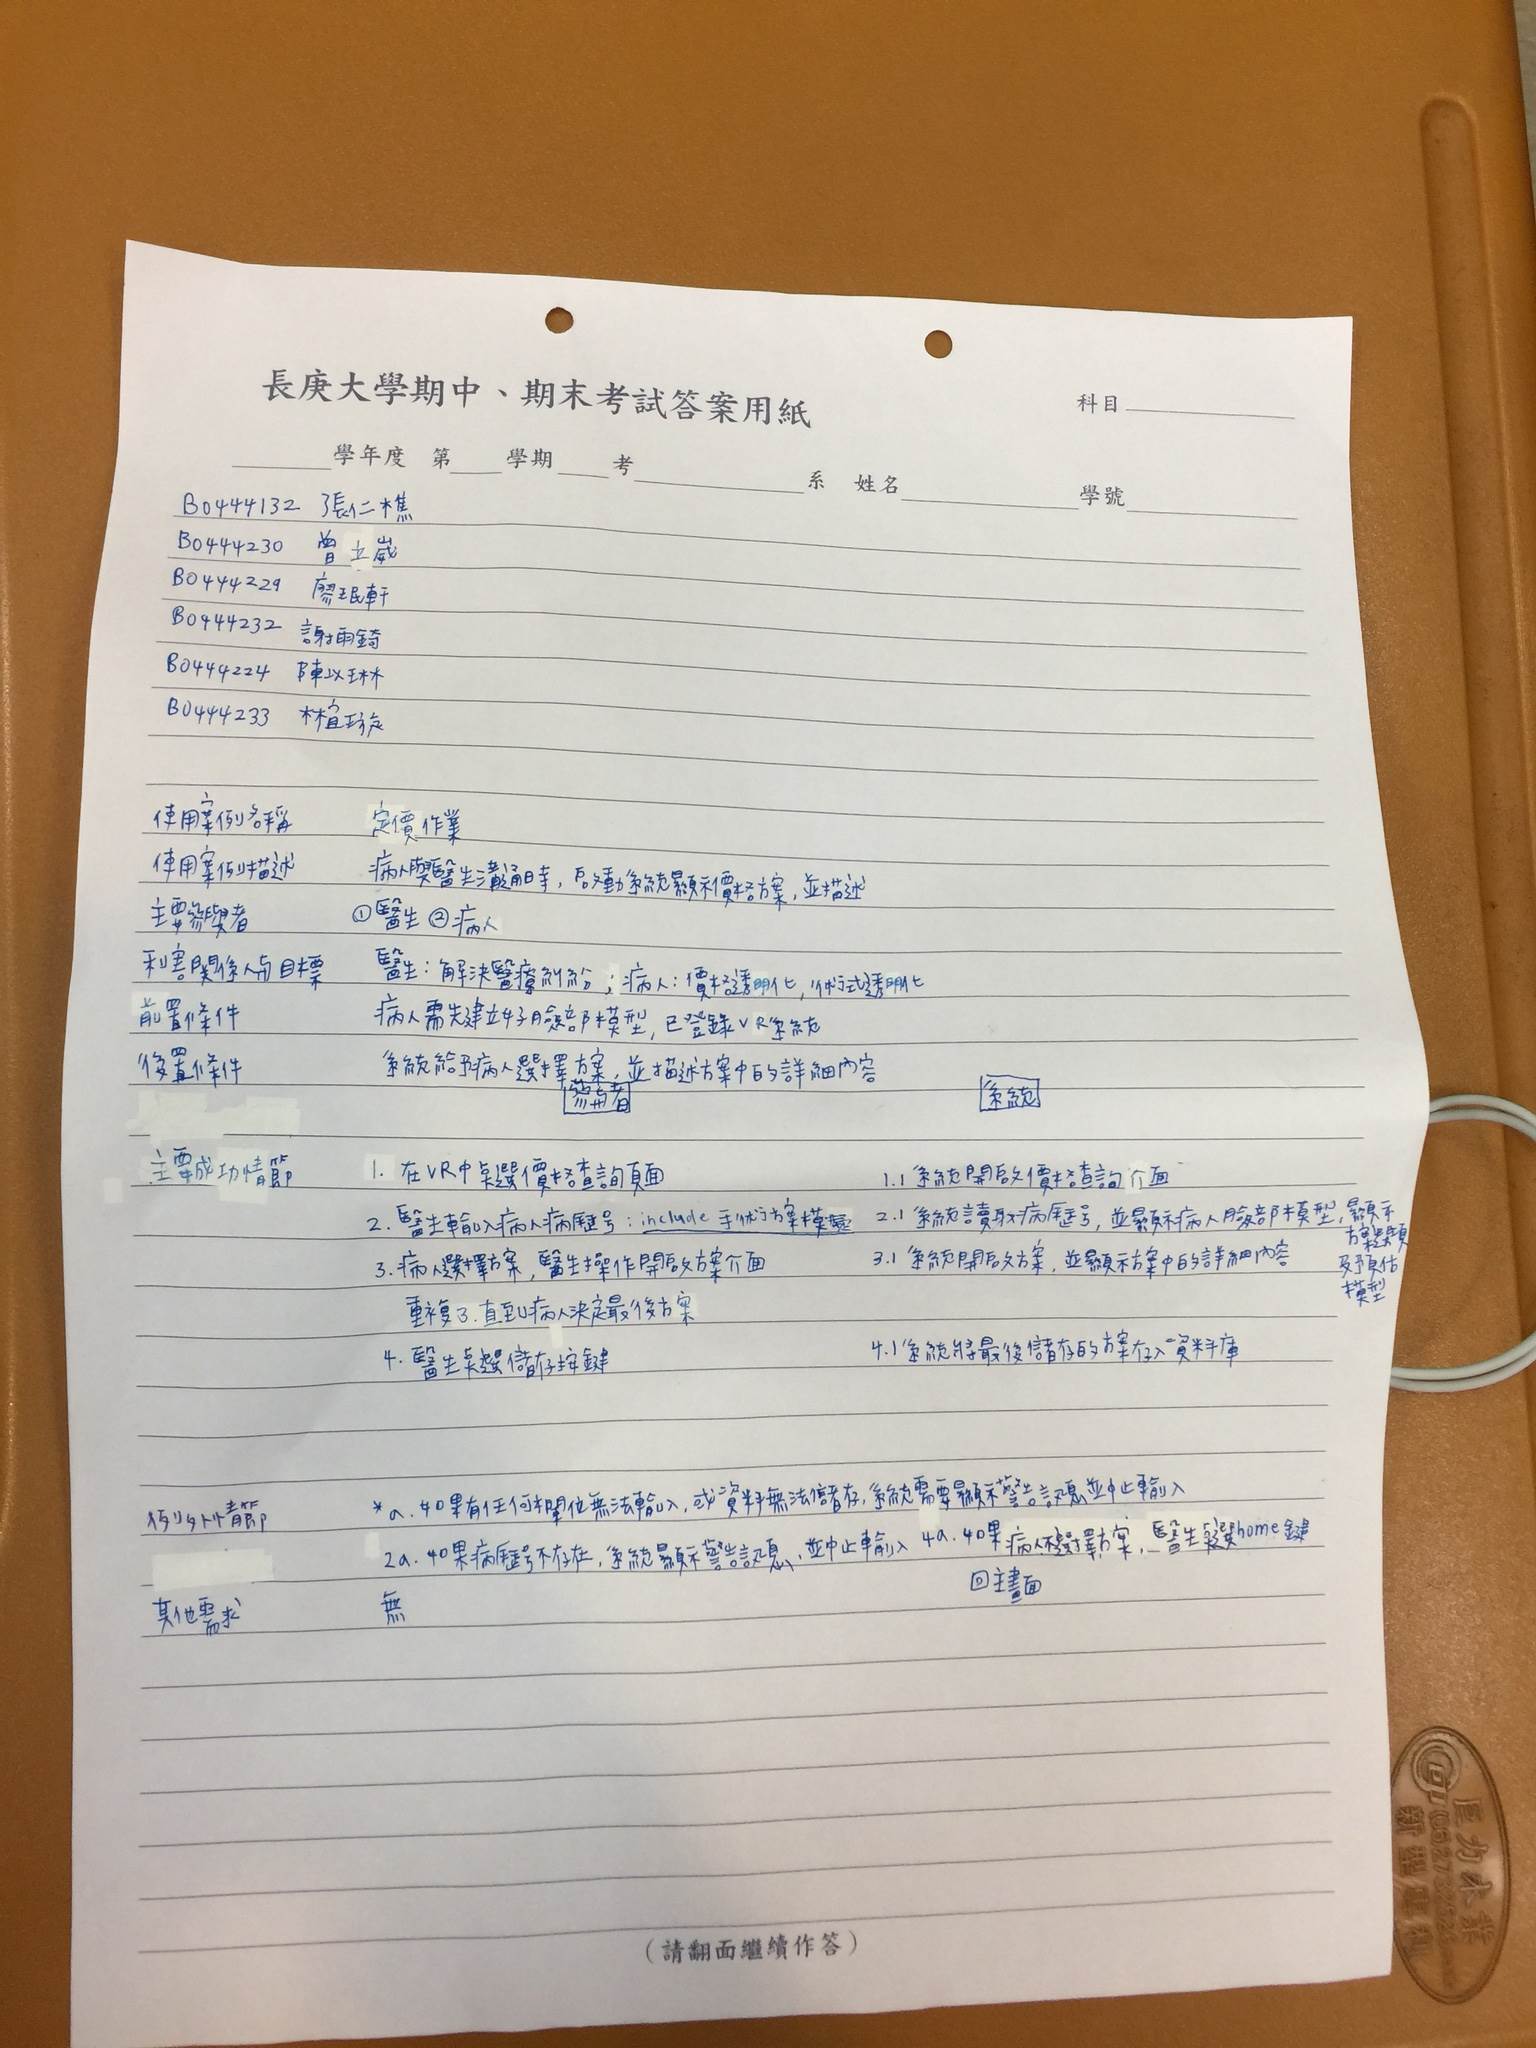 長庚大學期中、期末考試答案用紙
科目
學年度 第 學期 考 系 姓名 學號
B0444132 張仁樵
B0444230 曾立崴
B0444229 廖珉軒
B0444232 謝雨錡
B0444224 陳以琳
B0444233 林萓
使用案例名稱 定價作業
使用案例描述 病人與醫生溝通時,啟動系統顯示價格方案,並描述
主要參與者 ①醫生 ②病人
利害關係人與目標 醫生:解決醫療糾紛;病人:價格透明化,術式透明化
前置條件 病人需先建立好臉部模型,已登錄VR系統
後置條件 系統給予病人選擇方案,並描述方案中的詳細內容
參與者 系統
主要成功情節 1. 在VR中點選價格查詢頁面 1.1 系統開啟價格查詢介面
2. 醫生輸入病人病歷號:include 手術方案模擬 2.1 系統讀取病歷號,並顯示病人臉部模型,顯示方案選項及預估模型
3. 病人選擇方案,醫生操作開啟方案介面 3.1 系統開啟方案,並顯示方案中的詳細內容
重複3.直到病人決定最後方案
4. 醫生點選儲存按鍵 4.1 系統將最後儲存的方案存入資料庫
例外情節 *a. 如果有任何欄位無法輸入,或資料無法儲存,系統需要顯示警告訊息並中止輸入
2a. 如果病歷號不存在,系統顯示警告訊息,並中止輸入 4a. 如果病人不選擇方案,醫生點選home鍵
回主畫面
其他需求 無
(請翻面繼續作答)
巨力木業